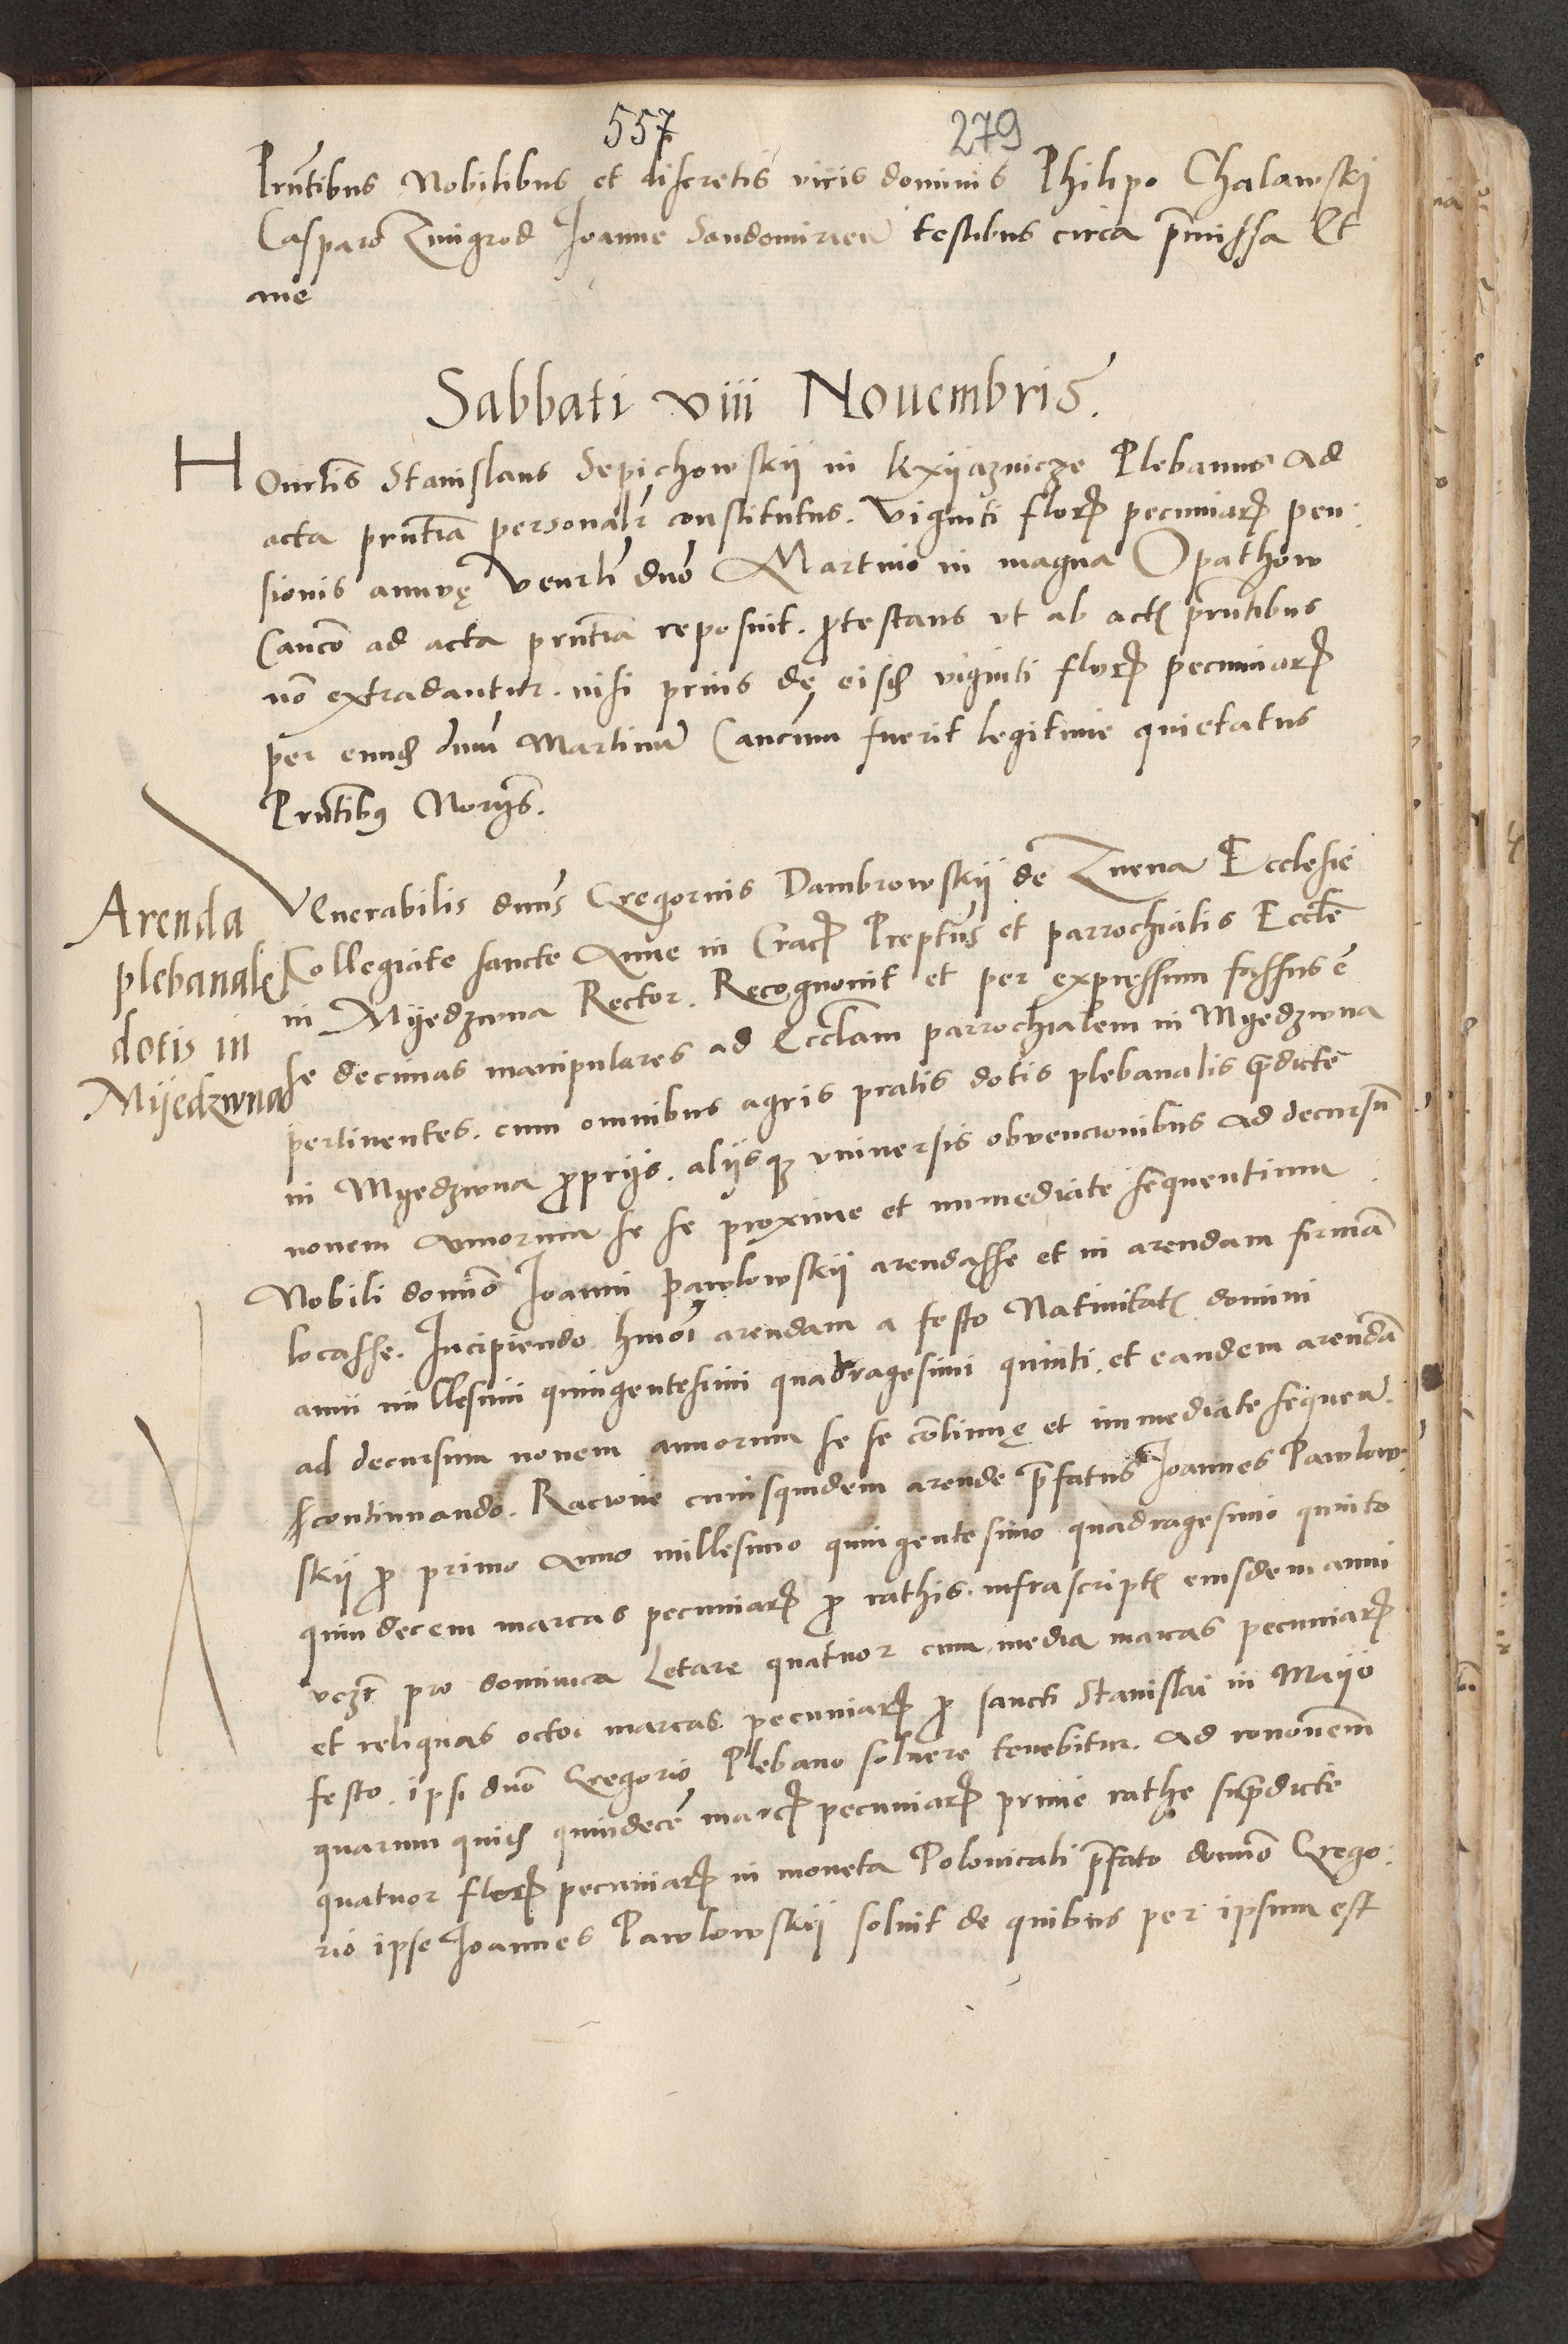 557 279
Prntibus Nobilibus et discretis viris dominis Philipo Chalawskj
Casparo Zmigrod Joanne Sandomirien testibus circa pmissa Et
me
Sabbati viii Nouembris.
Honirlis Stanislaus Sepichowskij in kxijaznicze Plebanus ad
acta prntia personalr constitutus. Viginti flor pecuniar pen:
sionis annuę Venrli dno Martino in magna Opathow
Canco ad acta prntia reposuit. ptestans vt ab act prntibus
no extradantur. nisi prius de eisd viginti flor pecuniar
per eund dnu Martinu Cancum fuerit legitime quietatus
Prntib9 Norijs.
Arenda
plebanalis
dotis in
Mijedzwna
Venerabilis dnns Gregorius Dambrowskij de Znena Ecclesie
Collegiate sancte Anne in Crac Preptus et parrochialis Eccle
in Mijedzwna Rector. Recognouit et per expressum fassus e
se decimas manipulares ad Ecclam parrochialem in Mijedzwna
pertinentes. cum omnibus agris pratis dotis plebanalis pdicte
in Myedzwna pprijs. alijsq vniuersis obuencionibus ad decursu
nouem annorum se se proxime et immediate sequentium
Nobili domino Joanni Pawlowskij arendasse et in arendam firma
locasse. Incipiendo hmoi arendam a festo Natiuitat domini
anni millesimi quingentesimi quadragesimi quinti. et eandem arenda
ad decursum nouem annorum se se continuę et immediate sequen.
continuando. Racione cuiusquidem arende pfatus Joannes Pawlow
skij p primo Anno millesimo quingentesimo quadragesimo quinto
quindecem marcas pecuniar p rathis. infrascript eiusdem anni
vczr pro dominica Letare quatuor cum media marcas pecuniar
et reliquas octo marcas pecuniar p sancti Stanislai in Maijo
festo. ipsi dno Gregorio Plebano soluere tenebitur. Ad
quarum quid quindece marc pecuniar prime rathe supdicte
quatuor flor pecuniar in moneta Polonicali pfato domino Grego:
rio ipse Joannes Pawlowskij soluit de quibus per ipsum est